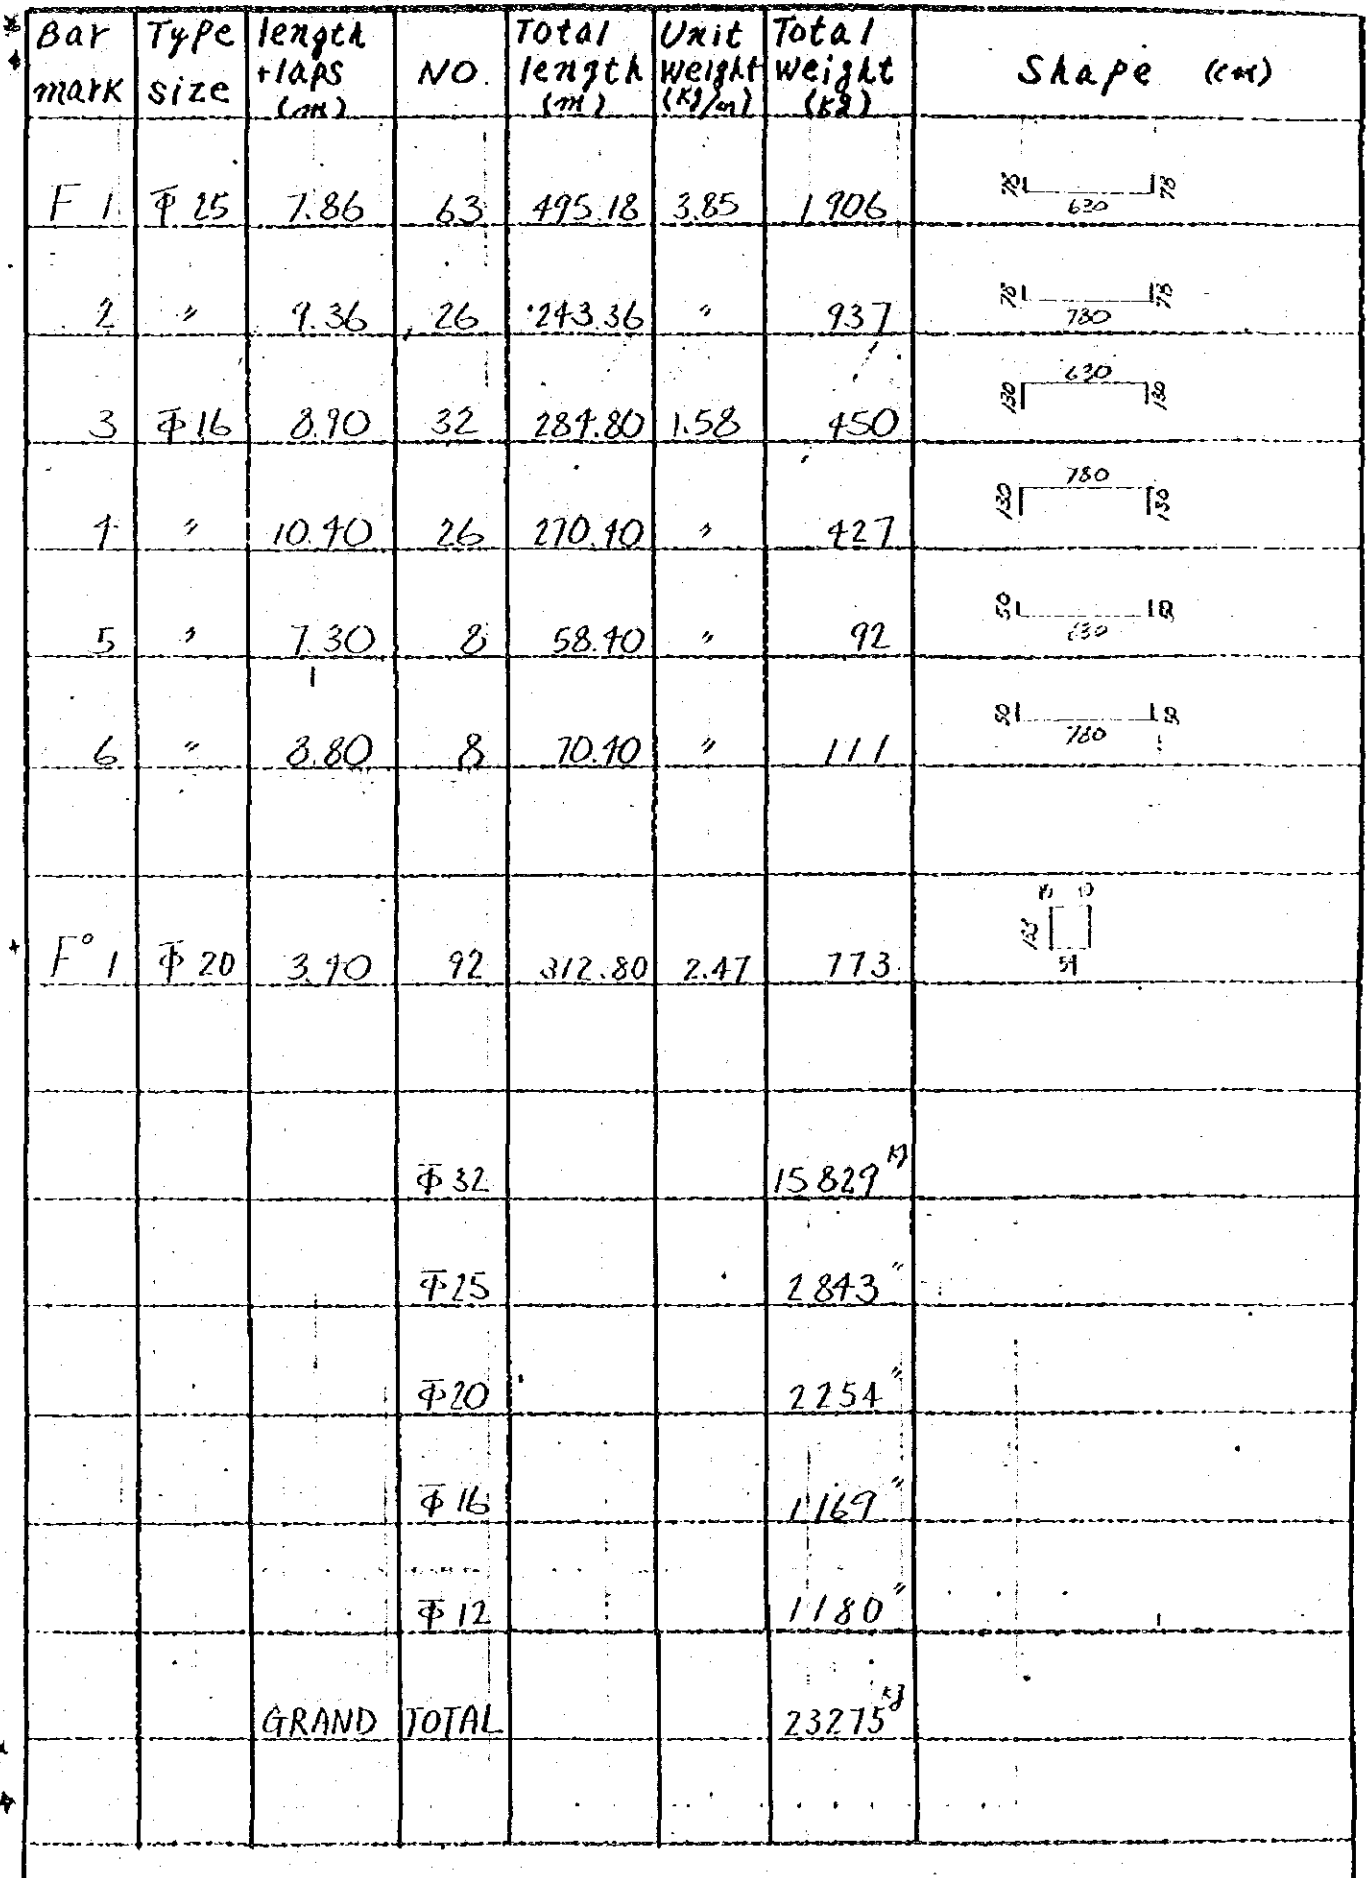 Bar mark Type size length +laps (m) NO. Total length (m) Unit weight (kg/m) Total weight (kg) Shape (cm)
F 1 Φ 25 7.86 63 495.18 3.85 1906 78 630 78
2 〃 9.36 26 243.36 〃 937 78 780 78
3 Φ 16 8.90 32 284.80 1.58 450 130 630 130
4 〃 10.40 26 270.40 〃 427 130 780 130
5 〃 7.30 8 58.40 〃 92 50 630 50
6 〃 8.80 8 70.40 〃 111 50 780 50
F° 1 Φ 20 3.40 92 312.80 2.47 773
Φ 32 15829 kg
Φ 25 2843 〃
Φ 20 2254 〃
Φ 16 1169 〃
Φ 12 1180 〃
GRAND TOTAL 23275 kg